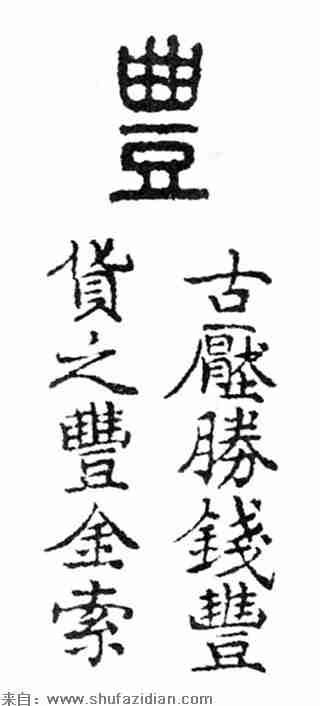 豐
古壓勝錢豐
貨之豐金索
来自：www.shufazidian.com